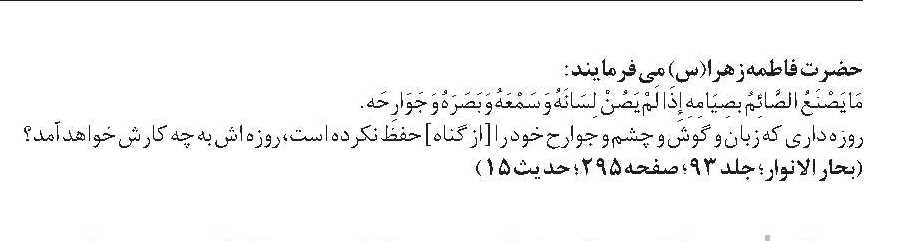 حضرت فاطمه زهرا(س) می فرمایند:
مَا یَصْنَعُ الصَّائِمُ بِصِیَامِهِ إِذَا لَمْ یَصُنْ لِسَانَهُ وَ سَمْعَهُ وَ بَصَرَهُ وَ جَوَارِحَه.
روزه داری که زبان و گوش و چشم و جوارح خود را [از گناه] حفظ نکرده است، روزه اش به چه کارش خواهد آمد؟
(بحار الانوار؛ جلد ۹۳؛ صفحه ۲۹۵؛ حدیث ۱۵)